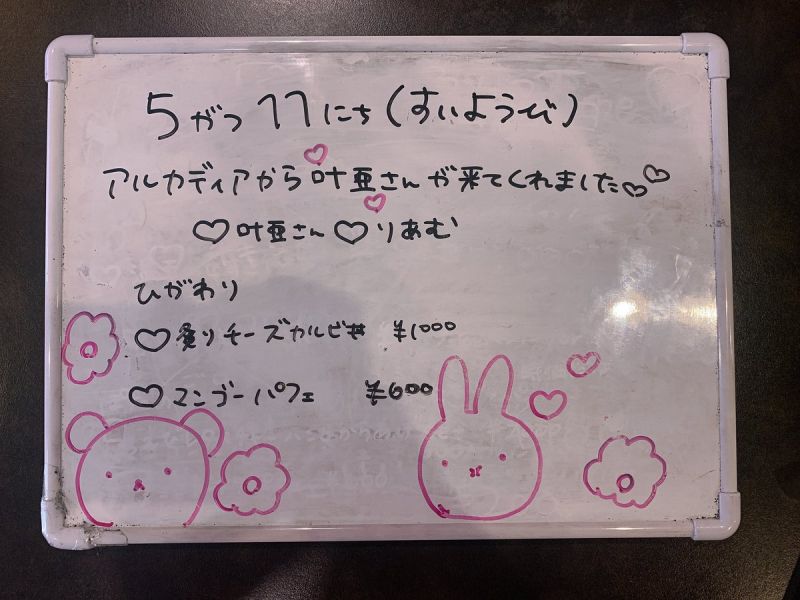 5がつ17にち(すいようび)
アルカディアから叶亜さんが来てくれました♡♡
♡叶亜さん♡りあむ
ひがわり
♡炙りチーズカルビ丼 ¥1000
♡マンゴーパフェ ¥600